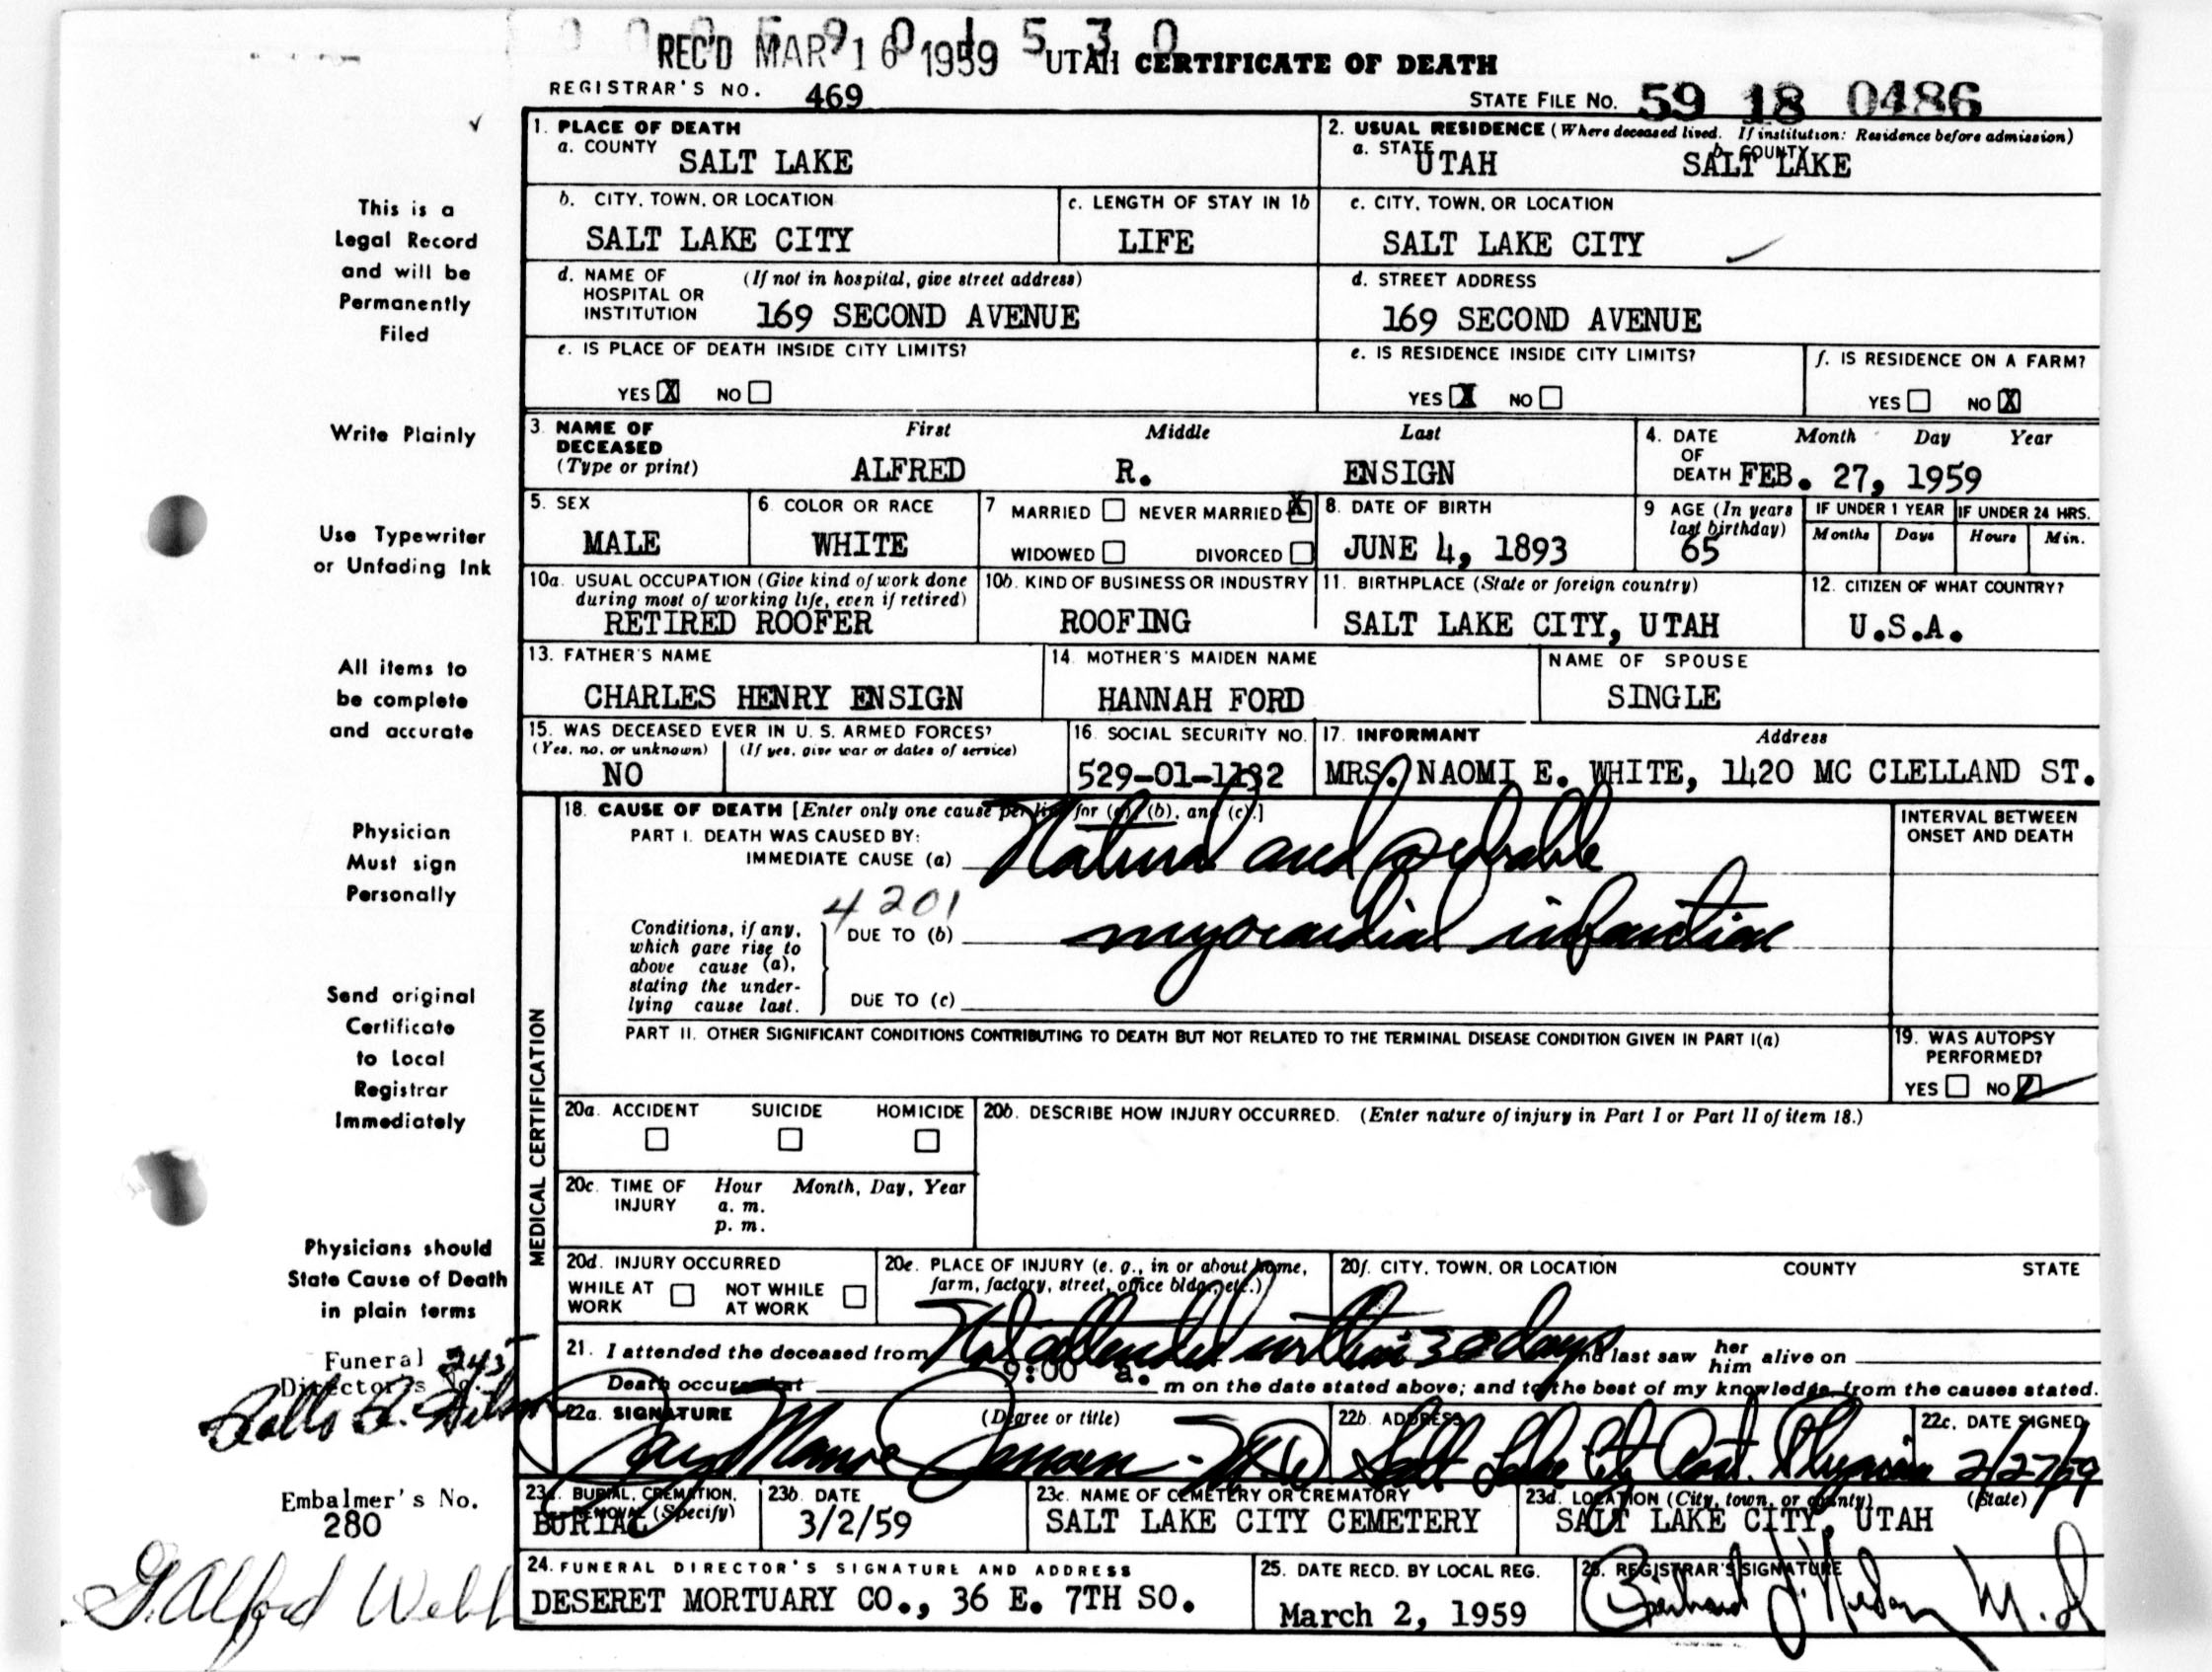 0 0 0 5 9 0 1 5 3 0
REC'D MAR 16 1959 UTAH CERTIFICATE OF DEATH
REGISTRAR'S NO. 469
STATE FILE No. 59 18 0486
1. PLACE OF DEATH
a. COUNTY SALT LAKE
2. USUAL RESIDENCE (Where deceased lived. If institution: Residence before admission)
a. STATE UTAH b. COUNTY SALT LAKE
b. CITY, TOWN, OR LOCATION SALT LAKE CITY
c. LENGTH OF STAY IN 1b LIFE
c. CITY, TOWN, OR LOCATION SALT LAKE CITY
d. NAME OF HOSPITAL OR INSTITUTION (If not in hospital, give street address) 169 SECOND AVENUE
d. STREET ADDRESS 169 SECOND AVENUE
e. IS PLACE OF DEATH INSIDE CITY LIMITS?
YES X NO
e. IS RESIDENCE INSIDE CITY LIMITS?
YES X NO
f. IS RESIDENCE ON A FARM?
YES NO X
3. NAME OF DECEASED (Type or print)
First Middle Last
ALFRED R. ENSIGN
4. DATE OF DEATH Month Day Year
FEB. 27, 1959
5. SEX MALE
6. COLOR OR RACE WHITE
7 MARRIED NEVER MARRIED X
WIDOWED DIVORCED
8. DATE OF BIRTH JUNE 4, 1893
9 AGE (In years last birthday) 65
IF UNDER 1 YEAR Months Days
IF UNDER 24 HRS. Hours Min.
10a. USUAL OCCUPATION (Give kind of work done during most of working life, even if retired)
RETIRED ROOFER
10b. KIND OF BUSINESS OR INDUSTRY
ROOFING
11. BIRTHPLACE (State or foreign country)
SALT LAKE CITY, UTAH
12. CITIZEN OF WHAT COUNTRY?
U.S.A.
13. FATHER'S NAME
CHARLES HENRY ENSIGN
14. MOTHER'S MAIDEN NAME
HANNAH FORD
NAME OF SPOUSE
SINGLE
15. WAS DECEASED EVER IN U. S. ARMED FORCES?
(Yes, no, or unknown) (If yes, give war or dates of service)
NO
16. SOCIAL SECURITY NO.
529-01-1132
17. INFORMANT Address
MRS. NAOMI E. WHITE, 1420 MC CLELLAND ST.
MEDICAL CERTIFICATION
18. CAUSE OF DEATH [Enter only one cause per line for (a), (b), and (c).]
PART I. DEATH WAS CAUSED BY:
IMMEDIATE CAUSE (a) Natural and probable
4201
Conditions, if any, which gave rise to above cause (a), stating the underlying cause last.
DUE TO (b) myocardial infarction
DUE TO (c)
INTERVAL BETWEEN ONSET AND DEATH
PART II. OTHER SIGNIFICANT CONDITIONS CONTRIBUTING TO DEATH BUT NOT RELATED TO THE TERMINAL DISEASE CONDITION GIVEN IN PART I(a)
19. WAS AUTOPSY PERFORMED?
YES NO
20a. ACCIDENT SUICIDE HOMICIDE
20b. DESCRIBE HOW INJURY OCCURRED. (Enter nature of injury in Part I or Part II of item 18.)
20c. TIME OF INJURY Hour Month, Day, Year
a. m.
p. m.
20d. INJURY OCCURRED
WHILE AT WORK NOT WHILE AT WORK
20e. PLACE OF INJURY (e. g., in or about home, farm, factory, street, office bldg., etc.)
20f. CITY, TOWN, OR LOCATION COUNTY STATE
21. I attended the deceased from Not attended within 30 days and last saw her him alive on
Death occurred at 9:00 a. m on the date stated above; and to the best of my knowledge, from the causes stated.
22a. SIGNATURE (Degree or title)
Jensen - MD
22b. ADDRESS
Salt Lake City
22c. DATE SIGNED
2/27/59
23a. BURIAL, CREMATION, REMOVAL (Specify)
BURIAL
23b. DATE
3/2/59
23c. NAME OF CEMETERY OR CREMATORY
SALT LAKE CITY CEMETERY
23d. LOCATION (City, town, or county) (State)
SALT LAKE CITY, UTAH
24. FUNERAL DIRECTOR'S SIGNATURE AND ADDRESS
DESERET MORTUARY CO., 36 E. 7TH SO.
25. DATE RECD. BY LOCAL REG.
March 2, 1959
26. REGISTRAR'S SIGNATURE
M.D
This is a
Legal Record
and will be
Permanently
Filed
Write Plainly
Use Typewriter
or Unfading Ink
All items to
be complete
and accurate
Physician
Must sign
Personally
Send original
Certificate
to Local
Registrar
Immediately
Physicians should
State Cause of Death
in plain terms
Funeral 245
Director's No.
Embalmer's No.
280
G. Alford Webb